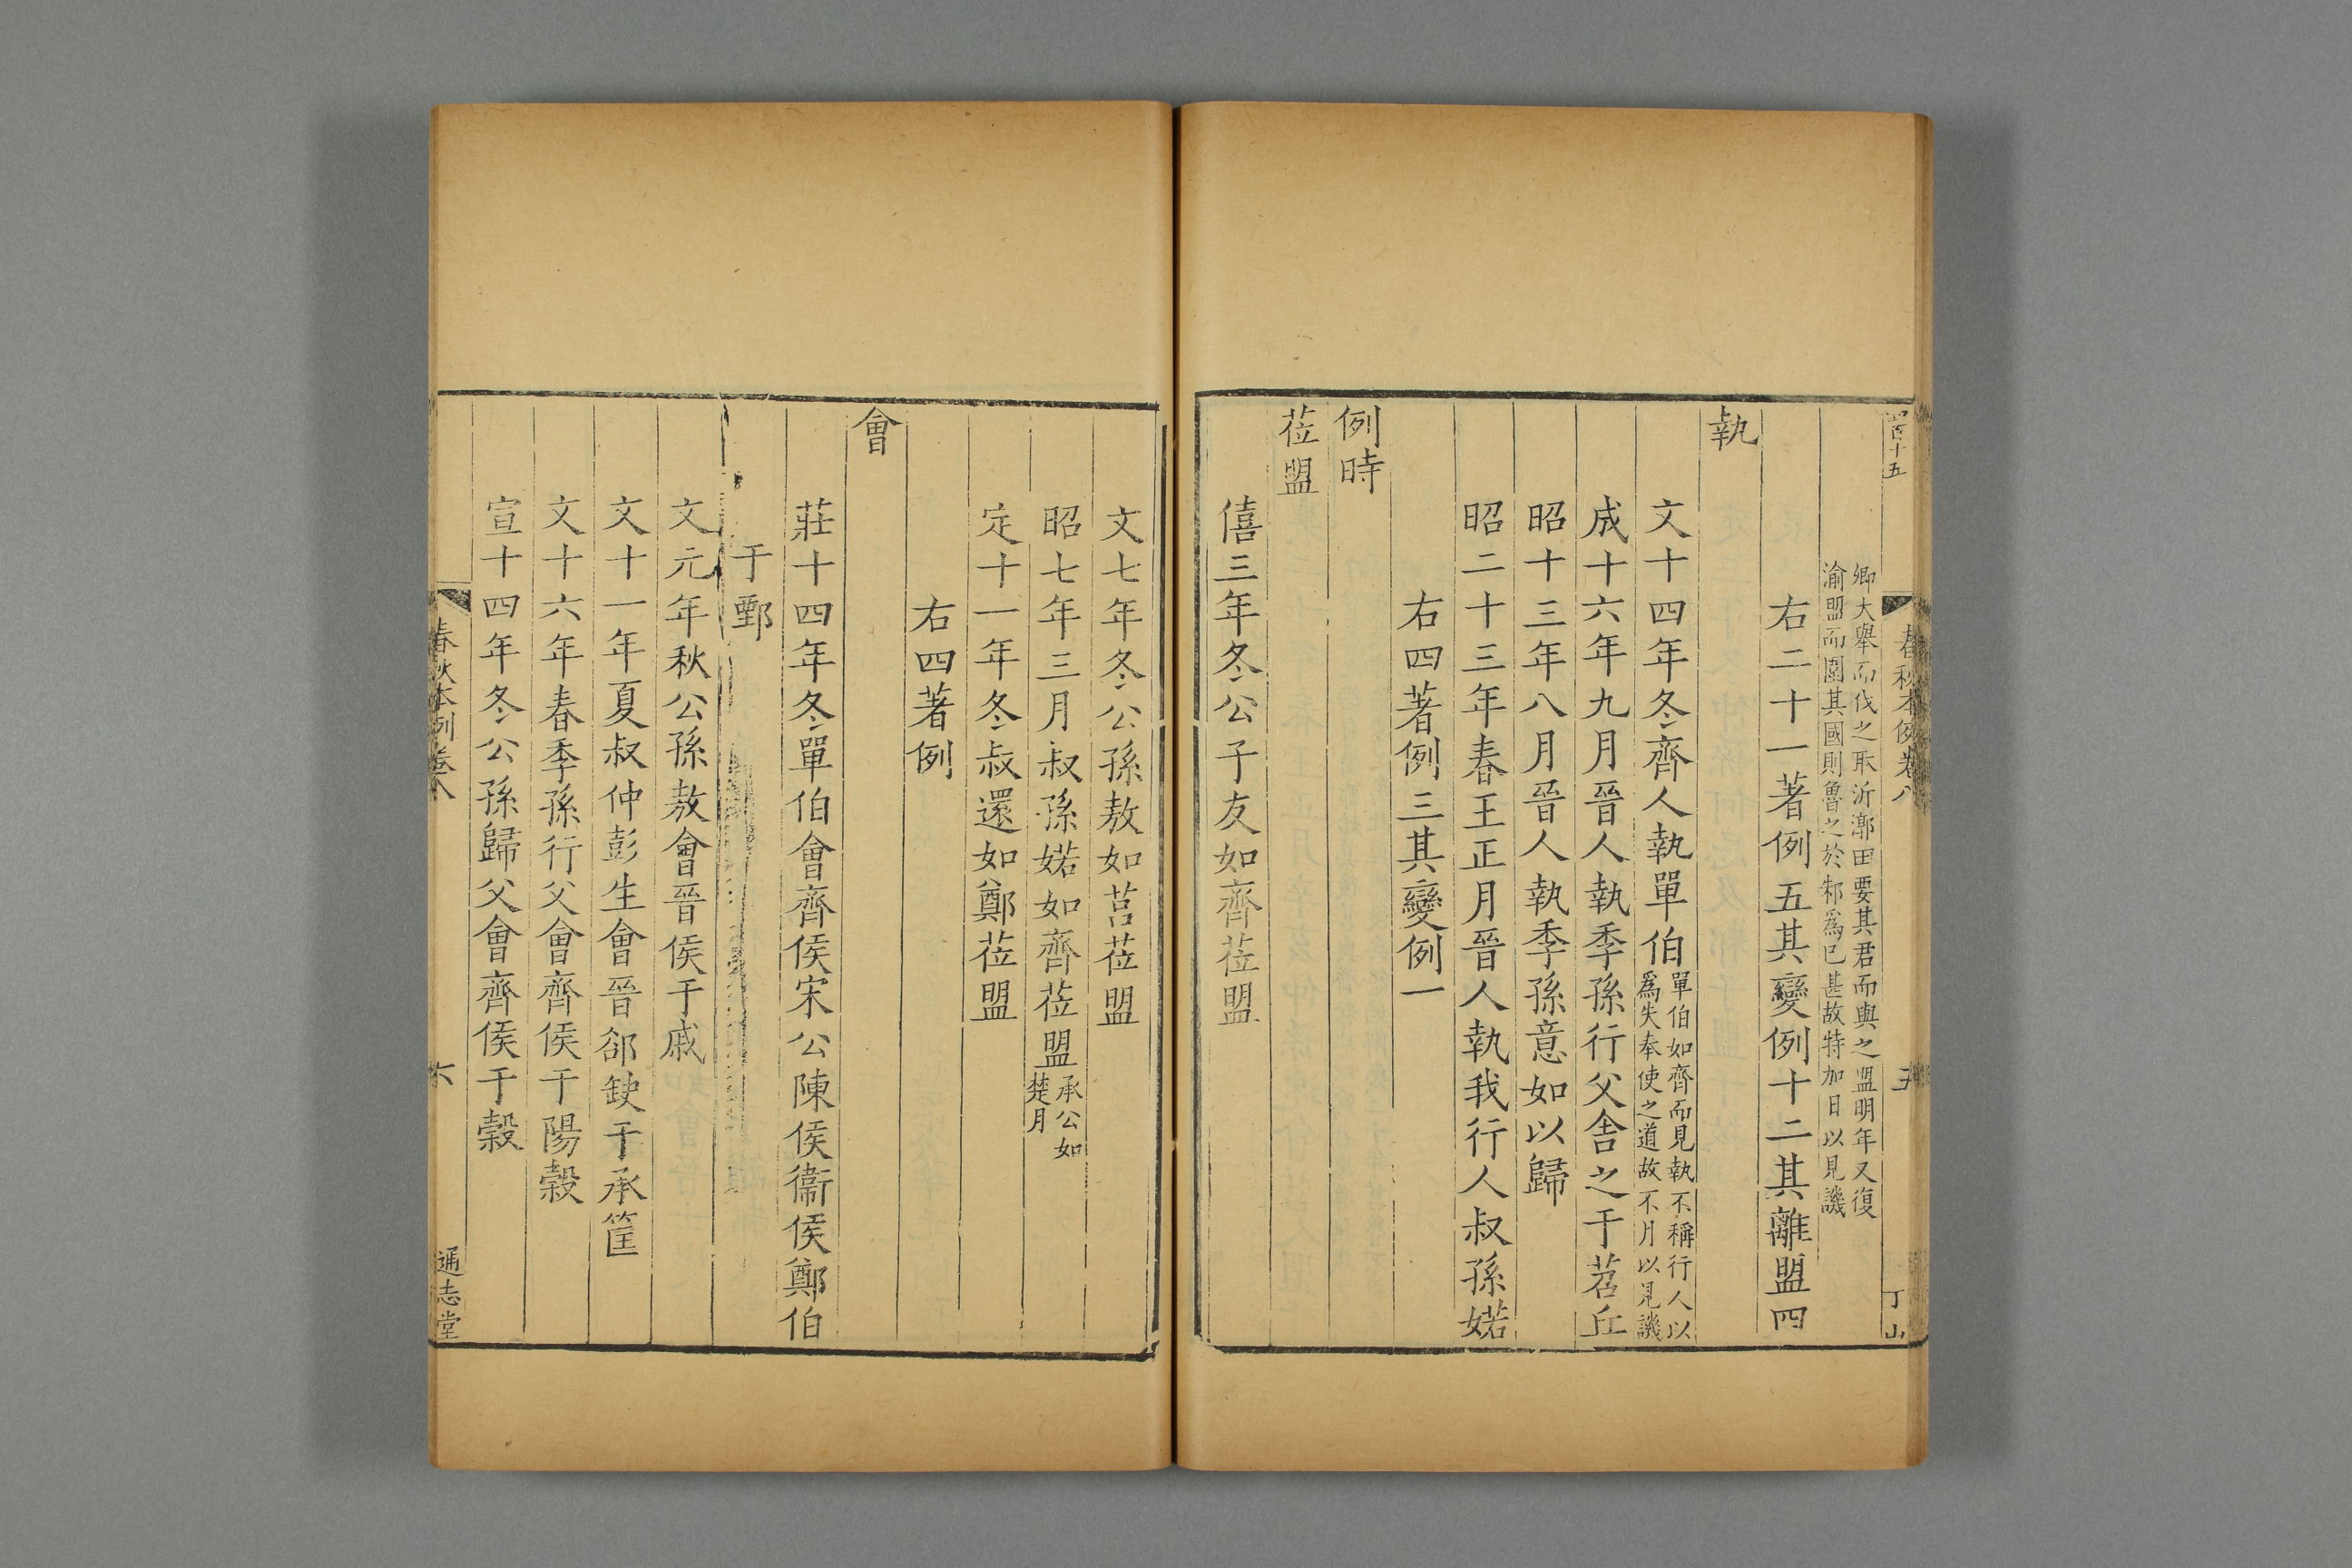 春秋本例卷八
五
丁山
卿大舉而伐之取沂漷田要其君而與之盟明年又復
渝盟而圍其國則魯之於邾爲已甚故特加日以見譏
右二十一著例五其變例十二其離盟四
執
文十四年冬齊人執單伯單伯如齊而見執不稱行人以
爲失奉使之道故不月以見譏
成十六年九月晉人執季孫行父舍之于苕丘
昭十三年八月晉人執季孫意如以歸
昭二十三年春王正月晉人執我行人叔孫婼
右四著例三其變例一
例時
莅盟
僖三年冬公子友如齊莅盟
文七年冬公孫敖如莒莅盟
昭七年三月叔孫婼如齊莅盟承公如
楚月
定十一年冬叔還如鄭莅盟
右四著例
會
莊十四年冬單伯會齊侯宋公陳侯衞侯鄭伯
于鄄
文元年秋公孫敖會晉侯于戚
文十一年夏叔仲彭生會晉郤缺于承筐
文十六年春季孫行父會齊侯于陽榖
宣十四年冬公孫歸父會齊侯于榖
春秋本例卷八
六
通志堂